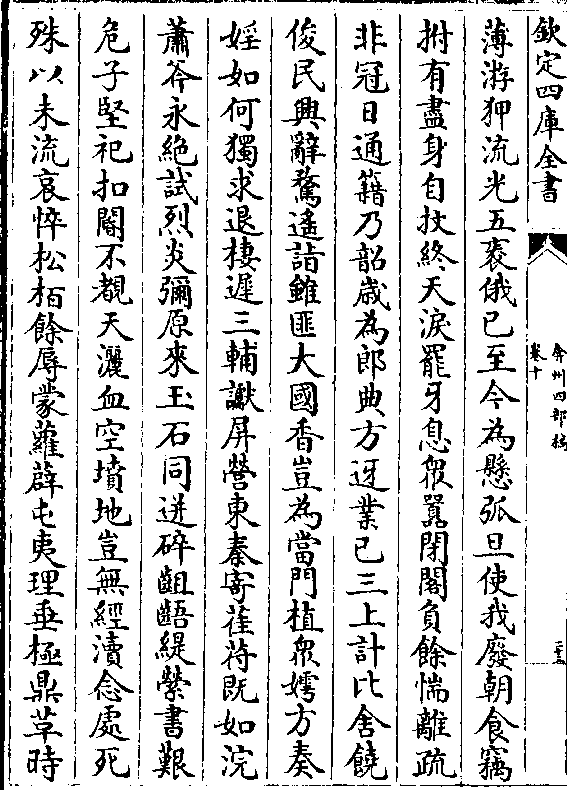 欽定四庫全書
弇州四部稿
卷十
薄游狎流光五袠俄已至今為懸弧旦使我廢朝食竊
拊有盡身自抆終天淚罷牙息衆囂閉閣負餘惴離疏
非冠日通籍乃韶歲為郎典方迓業已三上計比舍饒
俊民興辭騖遙詣雖匪大國香豈為當門植衆嫮方奏
婬如何獨求退棲遲三輔讞屏營東秦寄萑苻既如浣
蕭斧永絶試烈炎彌原來玉石同迸碎齟齬緹縈書艱
危子堅祀扣閽不覩天灑血空墳地豈無經瀆念處死
殊以未流哀悴松栢餘辱蒙蘿薜屯夷理垂極鼎草時